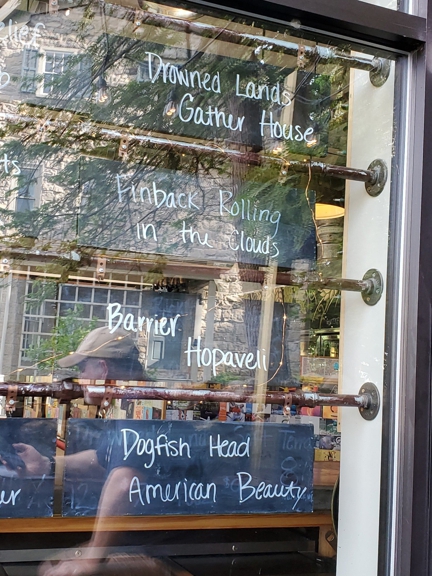 Drowned Lands
Gather House
Finback Rolling
in the Clouds
Barrier
Hopaveli
Dogfish Head
American Beauty